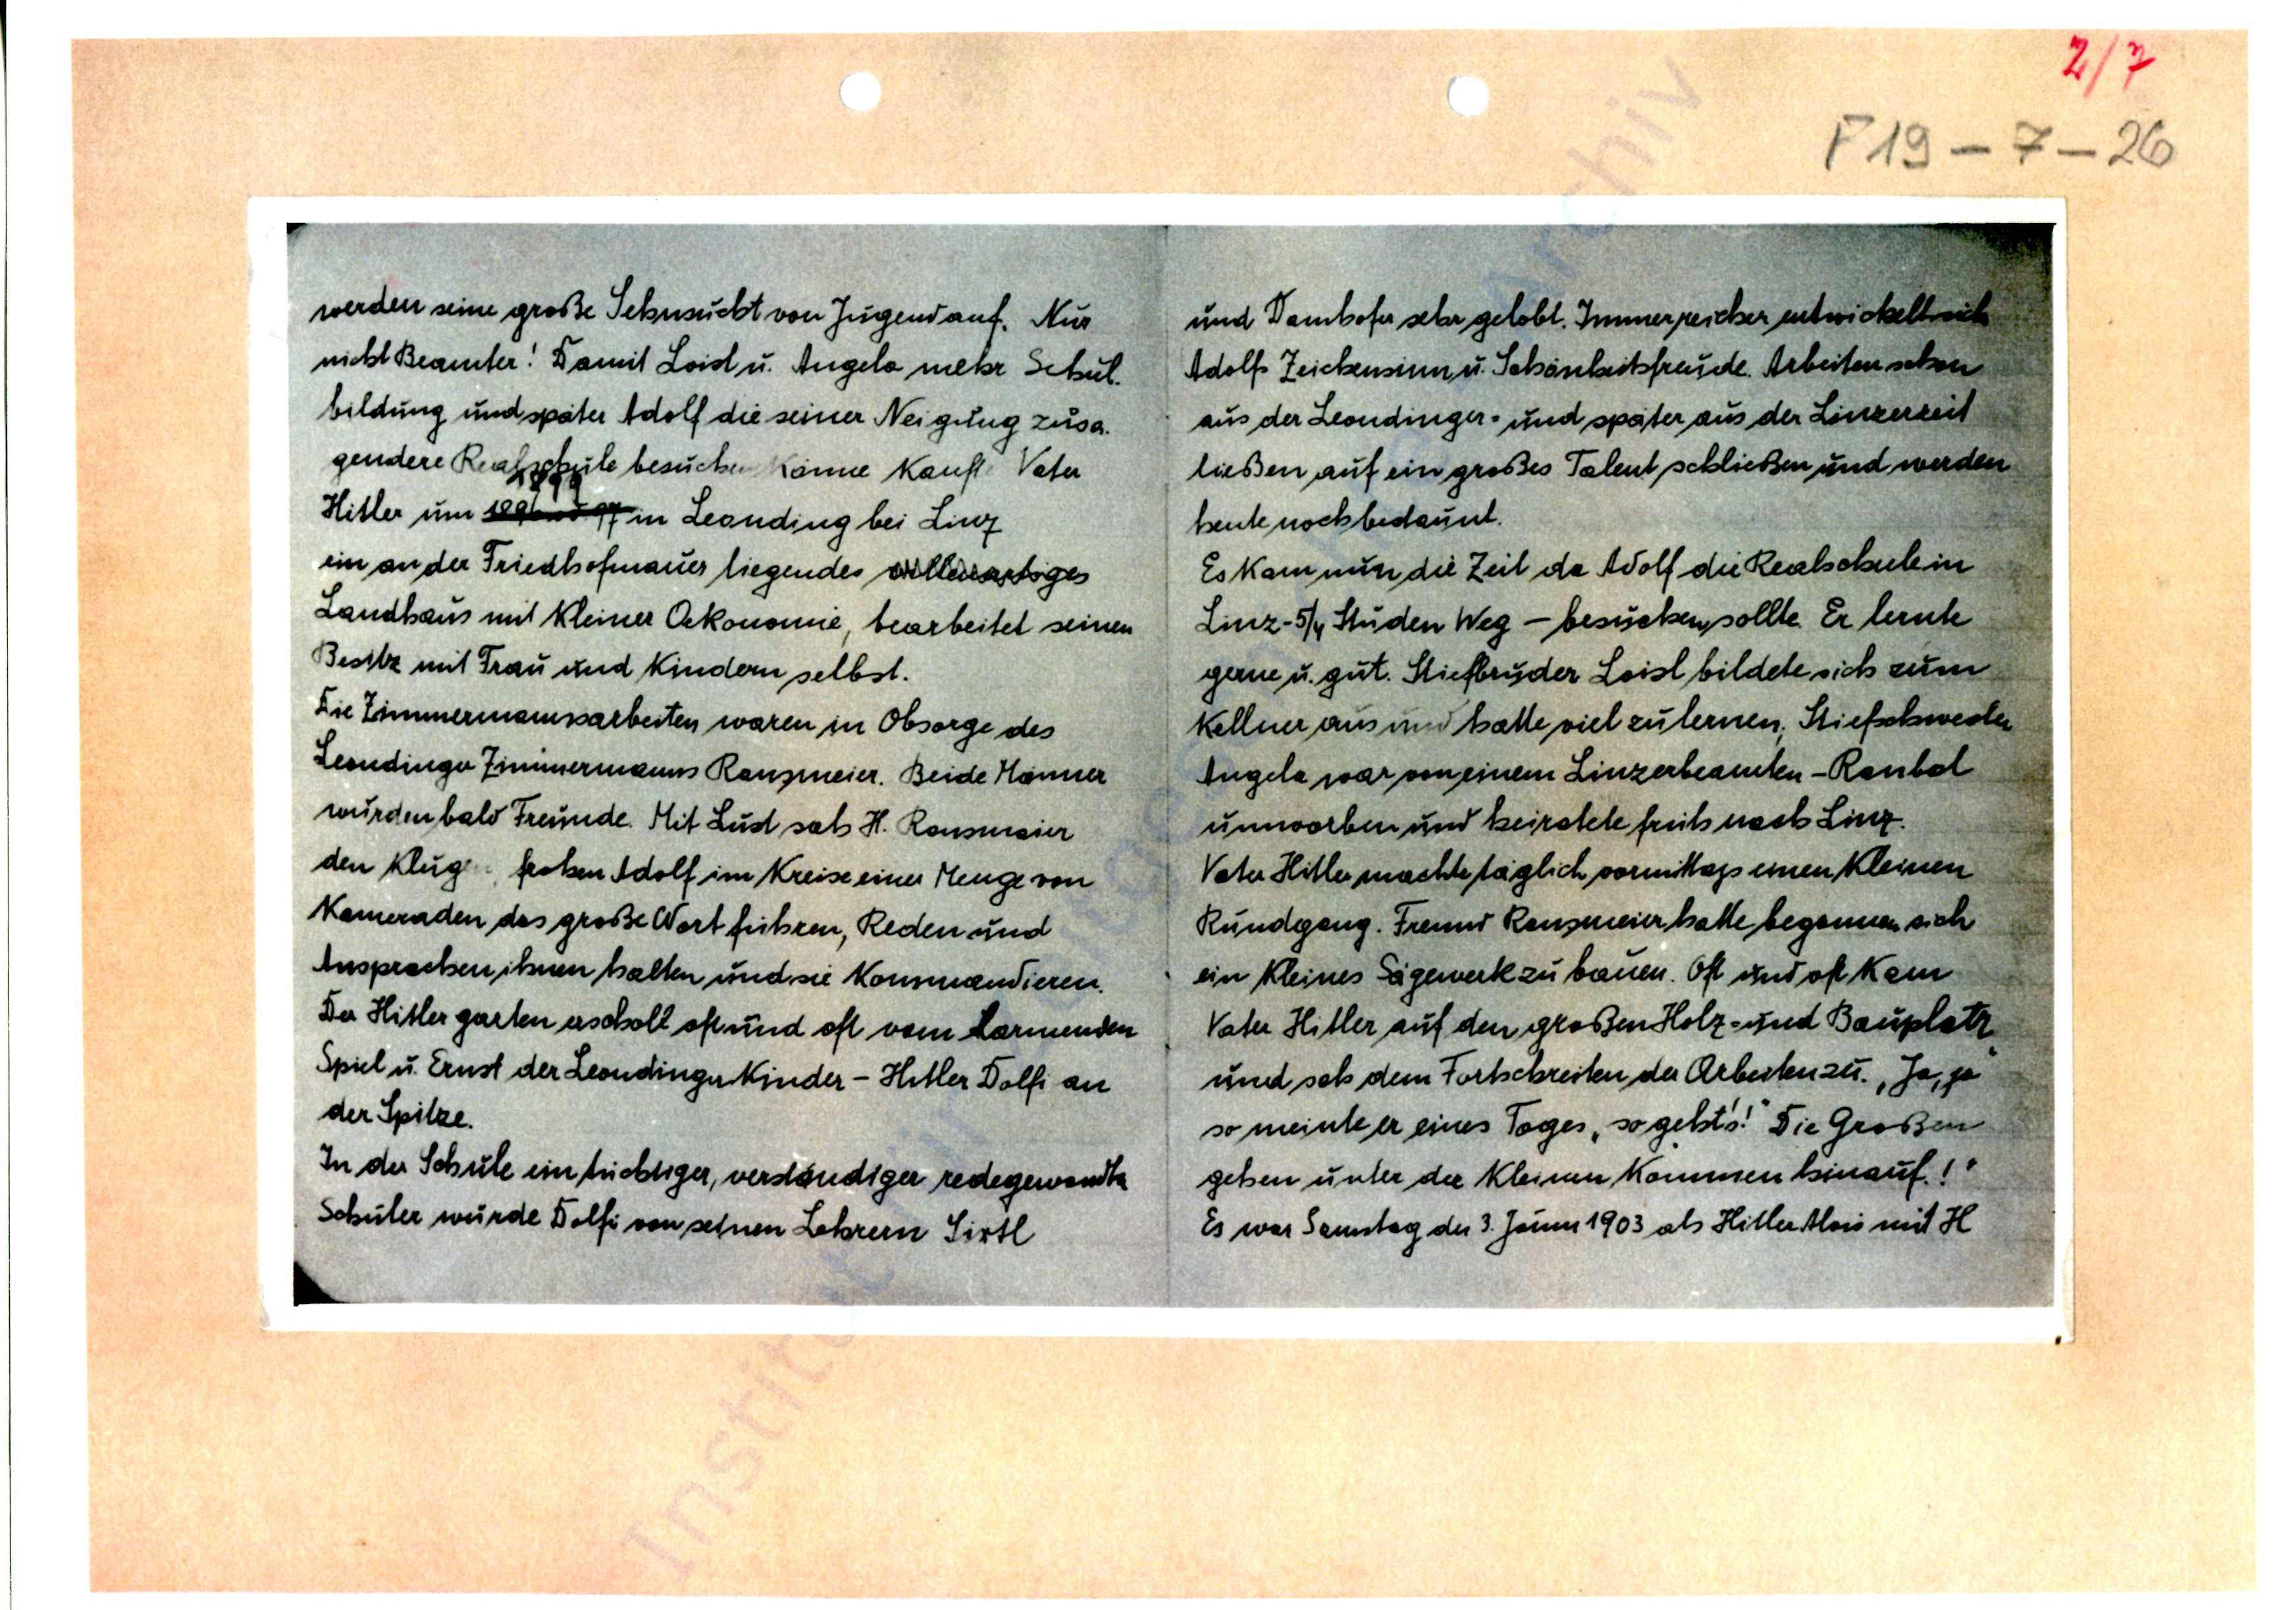 2/7
F19-7-26
werden seine große Sehnsucht von Jugend auf. Nur
nicht Beamter! Damit Loisl u. Angela mehr Schul-
bildung und später Adolf die seiner Neigung zusa-
gendere Realschule besuchen könne kauft Vater
1899
Hitler um in Leonding bei Linz
ein an der Friedhofmauer liegendes villenartiges
Landhaus mit kleiner Oekonomie, bearbeitet seinen
Besitz mit Frau und Kindern selbst.
Die Zimmermannsarbeiten waren in Obsorge des
Leondinger Zimmermanns Ransmeier. Beide Männer
wurden bald Freunde. Mit Lust sah H. Ransmaier
den klugen, frohen Adolf im Kreise einer Menge von
Kameraden das große Wort führen, Reden und
Ansprachen ihnen halten und sie kommandieren.
Der Hitlergarten erscholl oft und oft vom lärmenden
Spiel u. Ernst der Leondinger Kinder – Hitler Dolfi an
der Spitze.
In der Schule ein tüchtiger, verständiger redegewandter
Schüler wurde Dolfi von seinen Lehrern Sixtl
und Damhofer sehr gelobt. Immer reicher entwickelt sich
Adolfs Zeichensinn u. Schönheitsfreude. Arbeiten schon
aus der Leondinger- und später aus der Linzerzeit
ließen auf ein großes Talent schließen und werden
heute noch bestaunt.
Es kam nun die Zeit da Adolf die Realschule in
Linz – 5/4 Studen Weg – besuchen sollte. Er lernte
gerne u. gut. Stiefbruder Loisl bildete sich zum
Kellner aus und hatte viel zu lernen, Stiefschwester
Angela war von einem Linzerbeamten – Raubal
umworben und heiratete früh nach Linz.
Vater Hitler machte täglich vormittags einen kleinen
Rundgang. Freund Ransmeier hatte begonnen sich
ein kleines Sägewerk zu bauen. Oft und oft kam
Vater Hitler auf den großen Holz- und Bauplatz
und sah dem Fortschreiten der Arbeiten zu. „Ja, ja"
so meinte er eines Tages, „so geht's!" Die Großen
gehen unter die Kleinen kommen hinauf.!"
Es war Samstag der 3. Jänner 1903 als Hitler Alois mit H
Institut für Zeitgeschichte Archiv